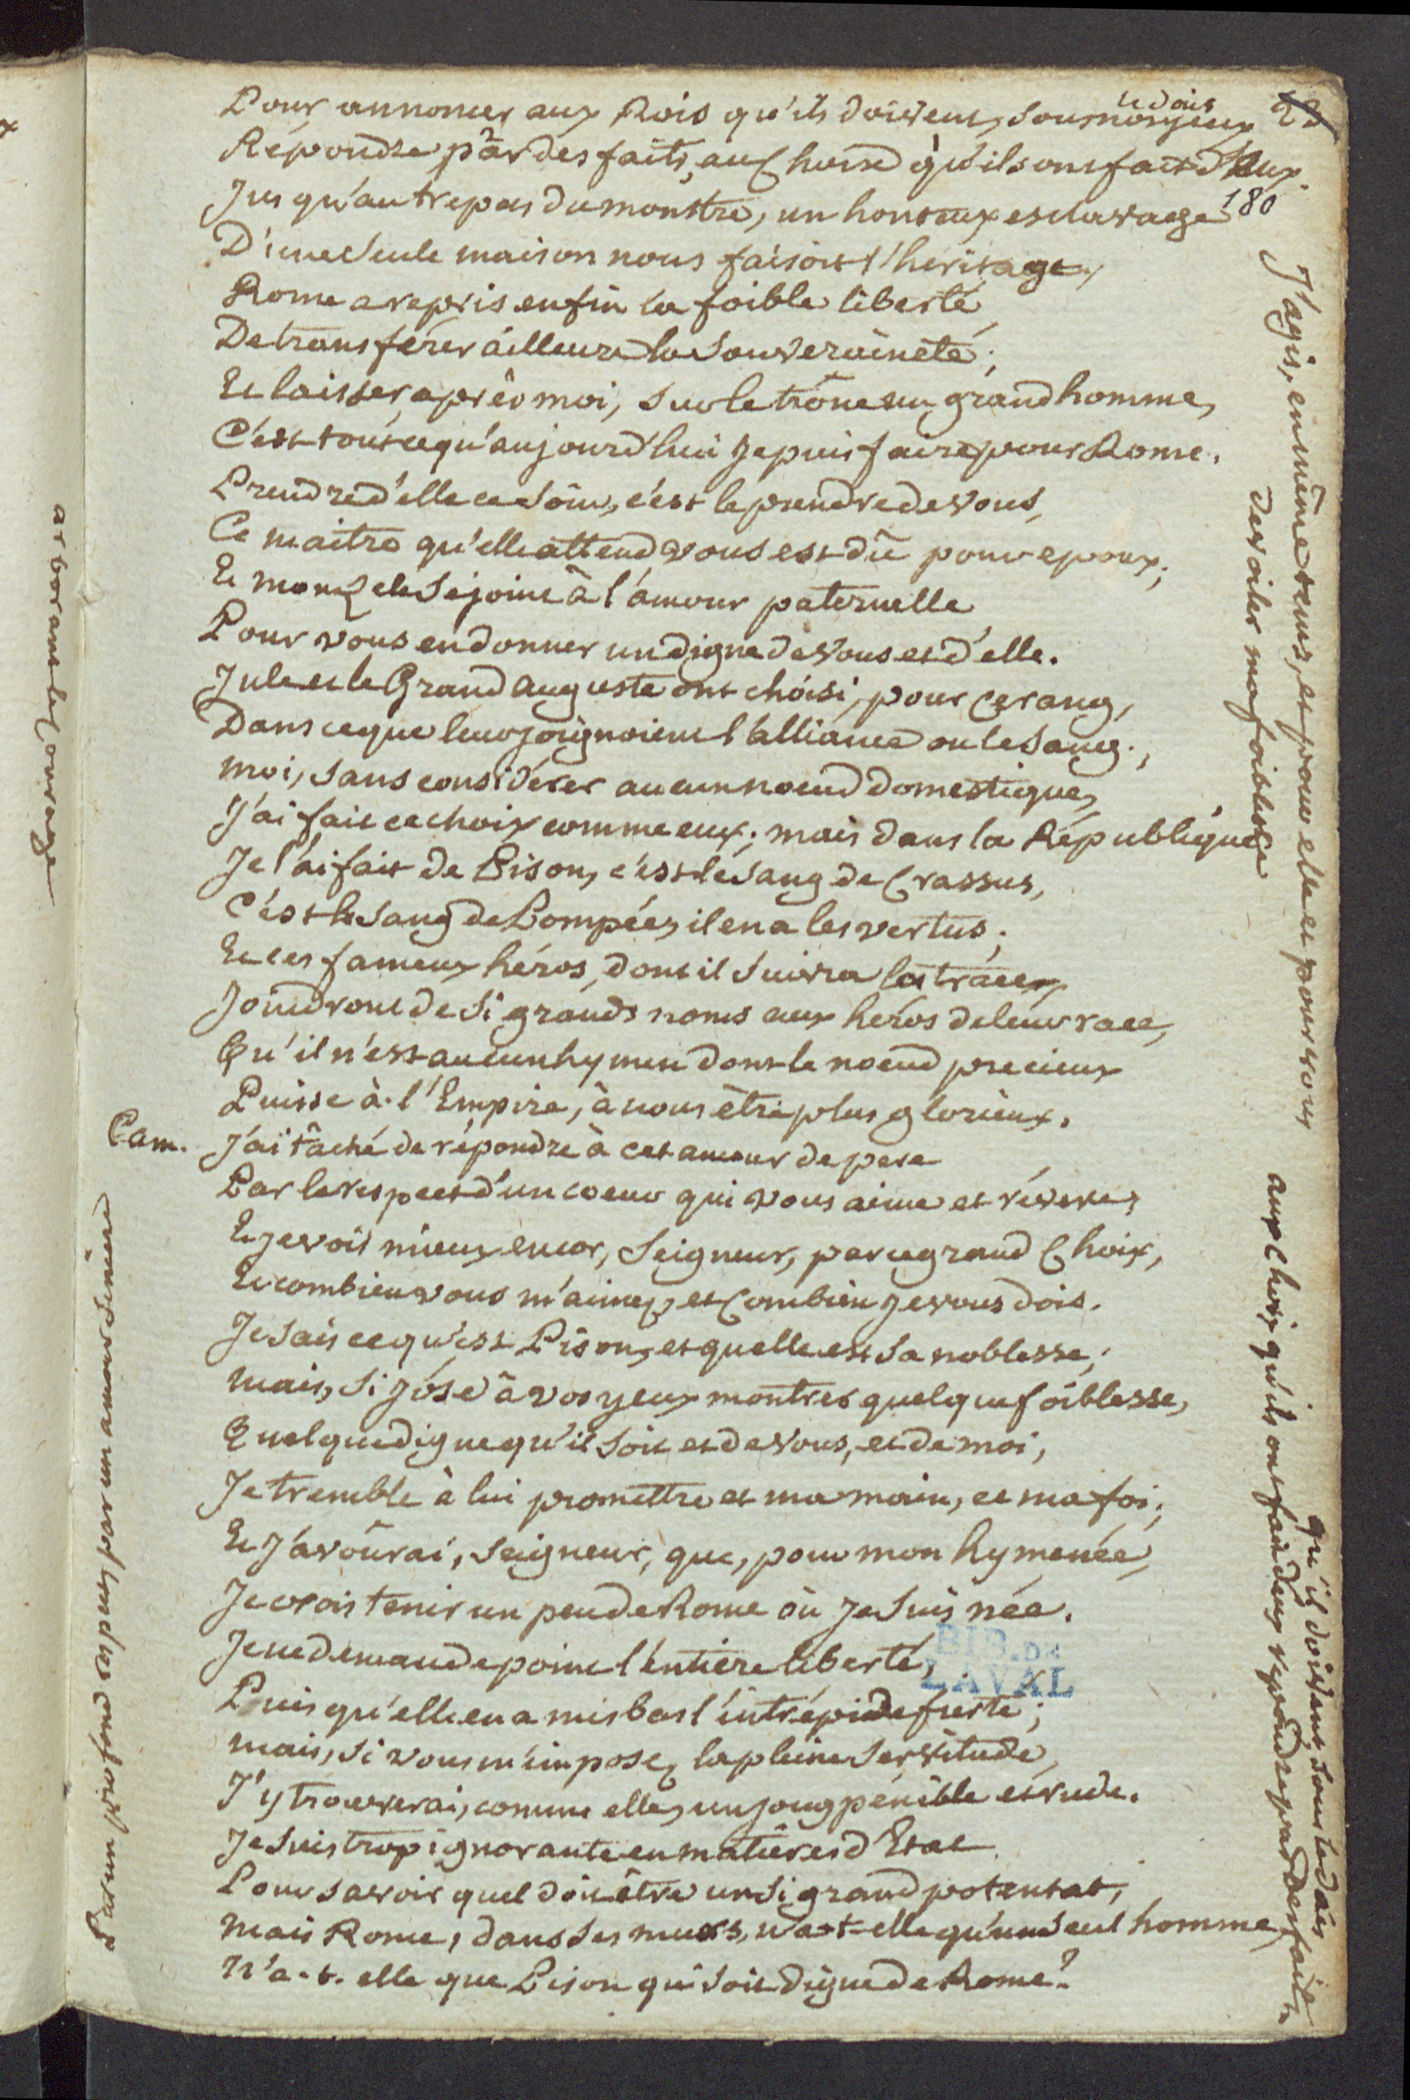 Pour annoncer aux Rois qu'ils doivent, sous nos yeux
le dais
Répondre par des faits, aux choix qu'ils ont fait d'eux.
180
Jusqu'au trepas du monstre, un honteux esclavage
D'une seule maison nous faisoit l'heritage,
Rome a repris enfin la foible liberté
De transférer ailleurs la souveraineté;
Et laisser, après moi, sur le trône un grand homme,
C'est tout ce qu'aujourd'hui je puis faire pour Rome.
Prendre d'elle ce soin, c'est le prendre de vous,
Ce maitre qu'elle attend vous est dû pour epoux;
Et mon zele se joint à l'amour paternelle
Pour vous en donner un digne de vous et d'elle.
Jule et le Grand Auguste ont choisi, pour ce rang,
Dans ce que leur joignoient l'alliance ou le sang;
Moi, sans considérer aucun noeud domestique,
J'ai fait ce choix comme eux; mais dans la République
Je l'ai fait de Pison, c'est le sang de Crassus,
C'est le sang de Pompée, il en a les vertus;
Et ces fameux héros, dont il suivra la trace,
Joindront de si grands noms aux héros de leur race,
Qu'il n'est aucun hymen dont le noeud precieux
Puisse à l'Empire, à nous être plus glorieux.
Cam. J'ai tâché de répondre à cet amour de pere
Par le respect d'un coeur qui vous aime et révere;
Et je vois mieux encor, Seigneur, par ce grand choix,
Et combien vous m'aimez, et combien je vous dois.
Je sais ce qu'est Pison, et quelle est sa noblesse;
Mais, si j'ose à vos yeux montrer quelque foiblesse,
Quelque digne qu'il soit et de vous, et de moi,
Je tremble à lui promettre et ma main, et ma foi;
Et j'avoûrai, Seigneur, que, pour mon hymenée,
Je crois tenir un peu de Rome où je suis née.
Je ne demande point l'entiere liberté,
Puis qu'elle en a mis bas l'intrépide fierté;
Mais, si vous m'imposez la pleine servitude,
J'y trouverai, comme elle, un joug pénible et rude.
Je suis trop ignorante en matieres d'Etat
Pour savoir quel doit être un si grand potentat,
Mais Rome, dans ses murs, n'a-t-elle qu'un seul homme,
N'a-t-elle que Pison qui soit digne de Rome?
J'agis, en même tems, et pour elle et pour vous
devoiler ma foiblesse
qu'ils doivent, sous le dais
aux choix qu'ils ont fait d'eux répondre par des faits
Par un profond respect, par un amour sincère
arborant le courage
BIB. DE
LAVAL